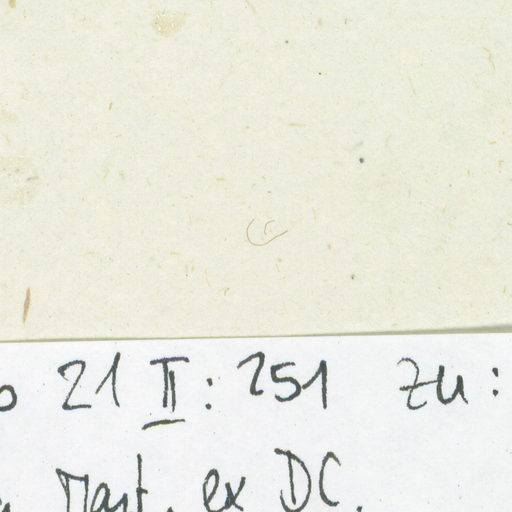 21 II: 251 zu:
Mart. ex DC.